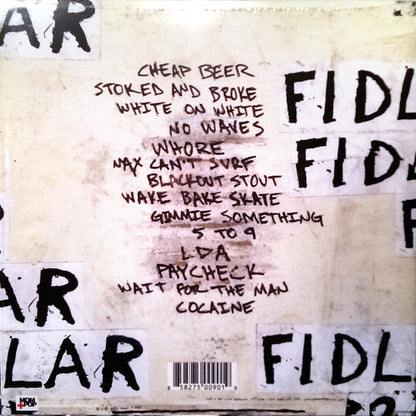 LAR
CHEAP BEER
STOKED AND BROKE
WHITE ON WHITE
FIDL
NO WAVES
WHORE
FIDL
MAX CAN'T SURF
BLACKOUT STOUT
WAKE BAKE SKATE
GIMMIE SOMETHING
5 TO 9
LDA
PAYCHECK
AR
WAIT FOR THE MAN
COCAINE
LAR
FIDL
8 58275 00901 9
MOM
+POP